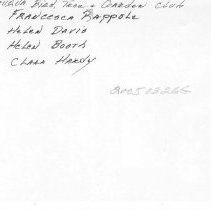 Bird, Tree & Garden Club
Francesca Rappole
Helen David
Helen Booth
Clara Hardy